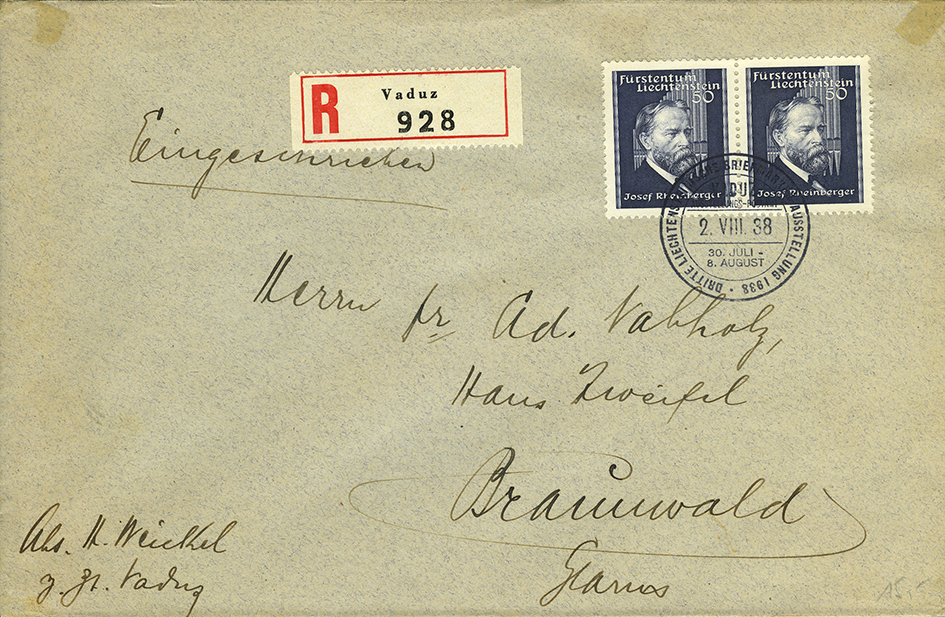 Eingeschrieben
R
Vaduz
928
Fürstentum
Liechtenstein
50
Josef Rheinberger
Fürstentum
Liechtenstein
50
Josef Rheinberger
DRITTE AUSSTELLUNG 1938
2. VIII. 38
30. JULI -
8. AUGUST
Herrn Dr. Ad. Nabholz,
Haus Zweifel
Braunwald
Glarus
Abs. H. Weickel
z. Zt. Vaduz